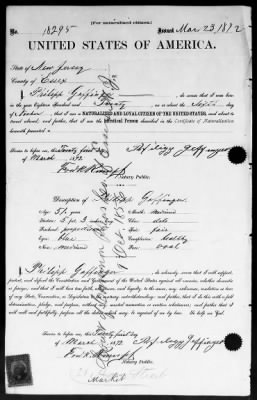 (For naturalized citizen.)
No. 18295 Issued Mar 23, 1872
UNITED STATES OF AMERICA.
State of New Jersey
County of Essex
I Philipp Gaffinger, do swear that I was born
in the year Eighteen Hundred and Twenty on the day
of October that I am a NATURALIZED AND LOYAL CITIZEN OF THE UNITED STATES, and about to
travel abroad, and further, that I am the Identical Person described in the Certificate of Naturalization
herewith presented
Sworn to before me, this Twenty first day
of March 1872
Notary Public.
Description of Philipp Gaffinger
Age: 51 years Mouth: medium
Stature: 5 feet 3 inches Chin:
Forehead: proportioned Hair:
Eyes: blue Complexion: healthy
Nose: medium Face: oval
I Philipp Gaffinger, do solemnly swear that I will support,
protect, and defend the Constitution and Government of the United States against all enemies, whether domestic
or foreign; and that I will bear true faith, allegiance, and loyalty to the same, any ordinance, resolution or law
of any State, Convention, or Legislature to the contrary notwithstanding; and further, that I do this with a full
determination, pledge, and purpose, without any mental reservation or evasion whatsoever; and further, that I will
well and faithfully perform all the duties which may be required of me by law: So help me God.
Sworn to before me, this Twenty first day
of March 1872
Notary Public.
Market Street